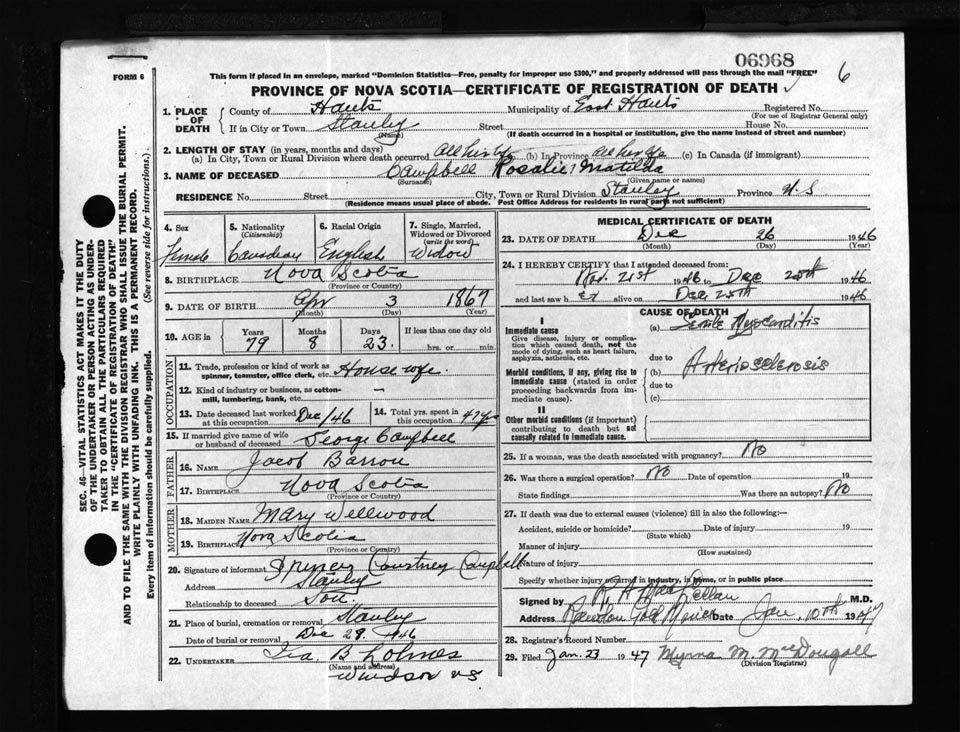 06968
6
FORM 6
This form if placed in an envelope, marked "Dominion Statistics—Free, penalty for improper use $300," and properly addressed will pass through the mail "FREE"
PROVINCE OF NOVA SCOTIA—CERTIFICATE OF REGISTRATION OF DEATH
1. PLACE OF DEATH County of Hants Municipality of East Hants Registered No.
(For use of Registrar General only)
If in City or Town Stanley Street House No.
(Name) (If death occurred in a hospital or institution, give the name instead of street and number)
2. LENGTH OF STAY (in years, months and days)
(a) In City, Town or Rural Division where death occurred all her life (b) In Province all her life (c) In Canada (if immigrant)
3. NAME OF DECEASED Campbell Rosalie Matilda
(Surname) (Given name or names)
RESIDENCE No. Street City, Town or Rural Division Stanley Province N.S
(Residence means usual place of abode. Post Office Address for residents in rural parts not sufficient)
4. Sex 5. Nationality (Citizenship) 6. Racial Origin 7. Single, Married, Widowed or Divorced (write the word)
Female Canadian English Widow
8. BIRTHPLACE Nova Scotia
(Province or Country)
9. DATE OF BIRTH Apr 3 1867
(Month) (Day) (Year)
10. AGE in Years Months Days If less than one day old
79 8 23. hrs. or min.
OCCUPATION
11. Trade, profession or kind of work as spinner, teamster, office clerk, etc. Housewife.
12. Kind of industry or business, as cotton-mill, lumbering, bank, etc. —
13. Date deceased last worked at this occupation Dec/46 14. Total yrs. spent in this occupation
15. If married give name of wife or husband of deceased George Campbell
FATHER
16. NAME Jacob Barron
17. BIRTHPLACE Nova Scotia
(Province or Country)
MOTHER
18. MAIDEN NAME Mary Wellwood
19. BIRTHPLACE Nova Scotia
(Province or Country)
20. Signature of informant Spencer Courtney Campbell
Address Stanley
Relationship to deceased Son.
21. Place of burial, cremation or removal Stanley
Date of burial or removal Dec 29. 1946
22. UNDERTAKER Ira. B Lohnes
(Name and address)
Windsor NS
MEDICAL CERTIFICATE OF DEATH
23. DATE OF DEATH Dec 26 1946
(Month) (Day) (Year)
24. I HEREBY CERTIFY that I attended deceased from:
Nov. 21st 1946 to Dec 25th 1946
and last saw h er alive on Dec 25th 1946
CAUSE OF DEATH
I
Immediate cause
Give disease, injury or complication which caused death, not the mode of dying, such as heart failure, asphyxia, asthenia, etc.
(a) Senile Myocarditis
due to
Morbid conditions, if any, giving rise to immediate cause (stated in order proceeding backwards from immediate cause).
(b) Arteriosclerosis
due to
(c)
II
Other morbid conditions (if important) contributing to death but not causally related to immediate cause.
25. If a woman, was the death associated with pregnancy? No
26. Was there a surgical operation? No Date of operation 19
State findings Was there an autopsy? No
27. If death was due to external causes (violence) fill in also the following:
Accident, suicide or homicide? Date of injury 19
(State which)
Manner of injury
(How sustained)
Nature of injury
Specify whether injury occurred in industry, in home, or in public place
Signed by R A MacLellan M.D.
Address Rawdon Gold Mines Date Jan, 10th 1947
28. Registrar's Record Number
29. Filed Jan. 23 1947 Myrna M. McDougall
(Division Registrar)
SEC. 46—VITAL STATISTICS ACT MAKES IT THE DUTY
OF THE UNDERTAKER OR PERSON ACTING AS UNDER-
TAKER TO OBTAIN ALL THE PARTICULARS REQUIRED
IN THE "CERTIFICATE OF REGISTRATION OF DEATH"
AND TO FILE THE SAME WITH THE DIVISION REGISTRAR WHO SHALL ISSUE THE BURIAL PERMIT.
WRITE PLAINLY WITH UNFADING INK. THIS IS A PERMANENT RECORD.
Every item of information should be carefully supplied. (See reverse side for instructions.)